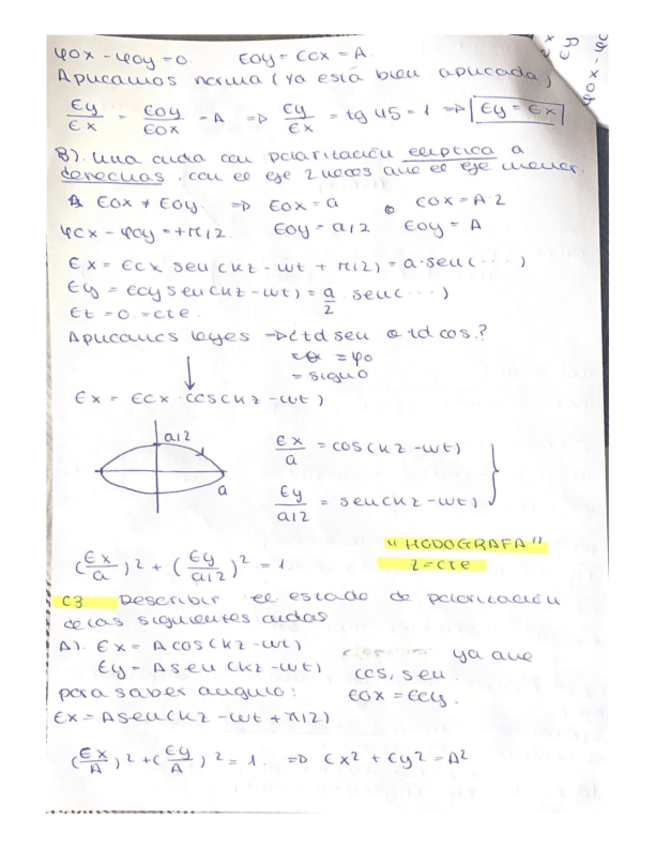 φox - φoy = 0. Eoy = Eox = A.
Aplicamos norma (ya está bien aplicada)
Ey/Ex = Eoy/Eox = A => Ey/Ex = tg 45 = 1 => Ey = Ex
B). Una onda con polarización elíptica a
derechas, con el eje 2 veces que el eje menor.
Eox ≠ Eoy. => Eox = a Eox = A·2
φox - φoy = +π/2. Eoy = a/2 Eoy = A
Ex = Eox sen(kz - wt + π/2) = a·sen(···)
Ey = Eoy sen(kz - wt) = a/2 sen(···)
Et = 0. = cte.
Aplicamos leyes => ctd sen o td cos.?
= φo
= signo
Ex = Eox · cos(kz - wt)
a/2
a
Ex/a = cos(kz - wt)
Ey/a/2 = sen(kz - wt)
(Ex/a)2 + (Ey/a/2)2 = 1.
"HODOGRAFA"
z = cte
C3 Describir el estado de polarización
de las siguientes ondas
A). Ex = A cos(kz - wt) ya que
Ey = A sen (kz - wt) cos, sen.
para saber angulo: Eox = Eoy.
Ex = A sen(kz - wt + π/2)
(Ex/A)2 + (Ey/A)2 = 1. => Ex2 + Ey2 = A2